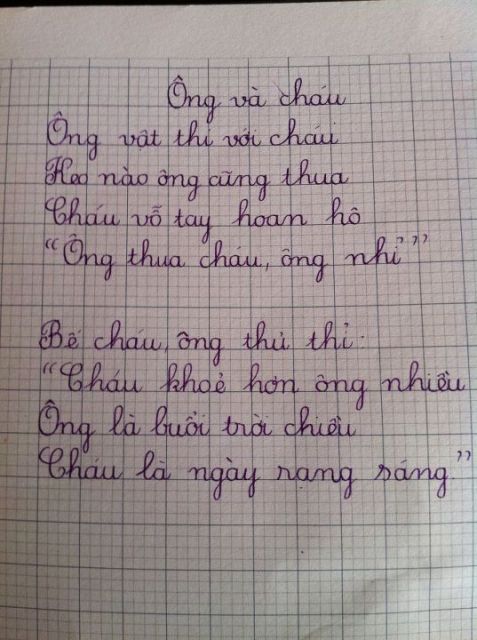 Ông và cháu
Ông vật thi với cháu
Keo nào ông cũng thua
Cháu vỗ tay hoan hô
“Ông thua cháu, ông nhỉ”
Bế cháu, ông thủ thỉ.
“Cháu khoẻ hơn ông nhiều
Ông là buổi trời chiều
Cháu là ngày rạng sáng”